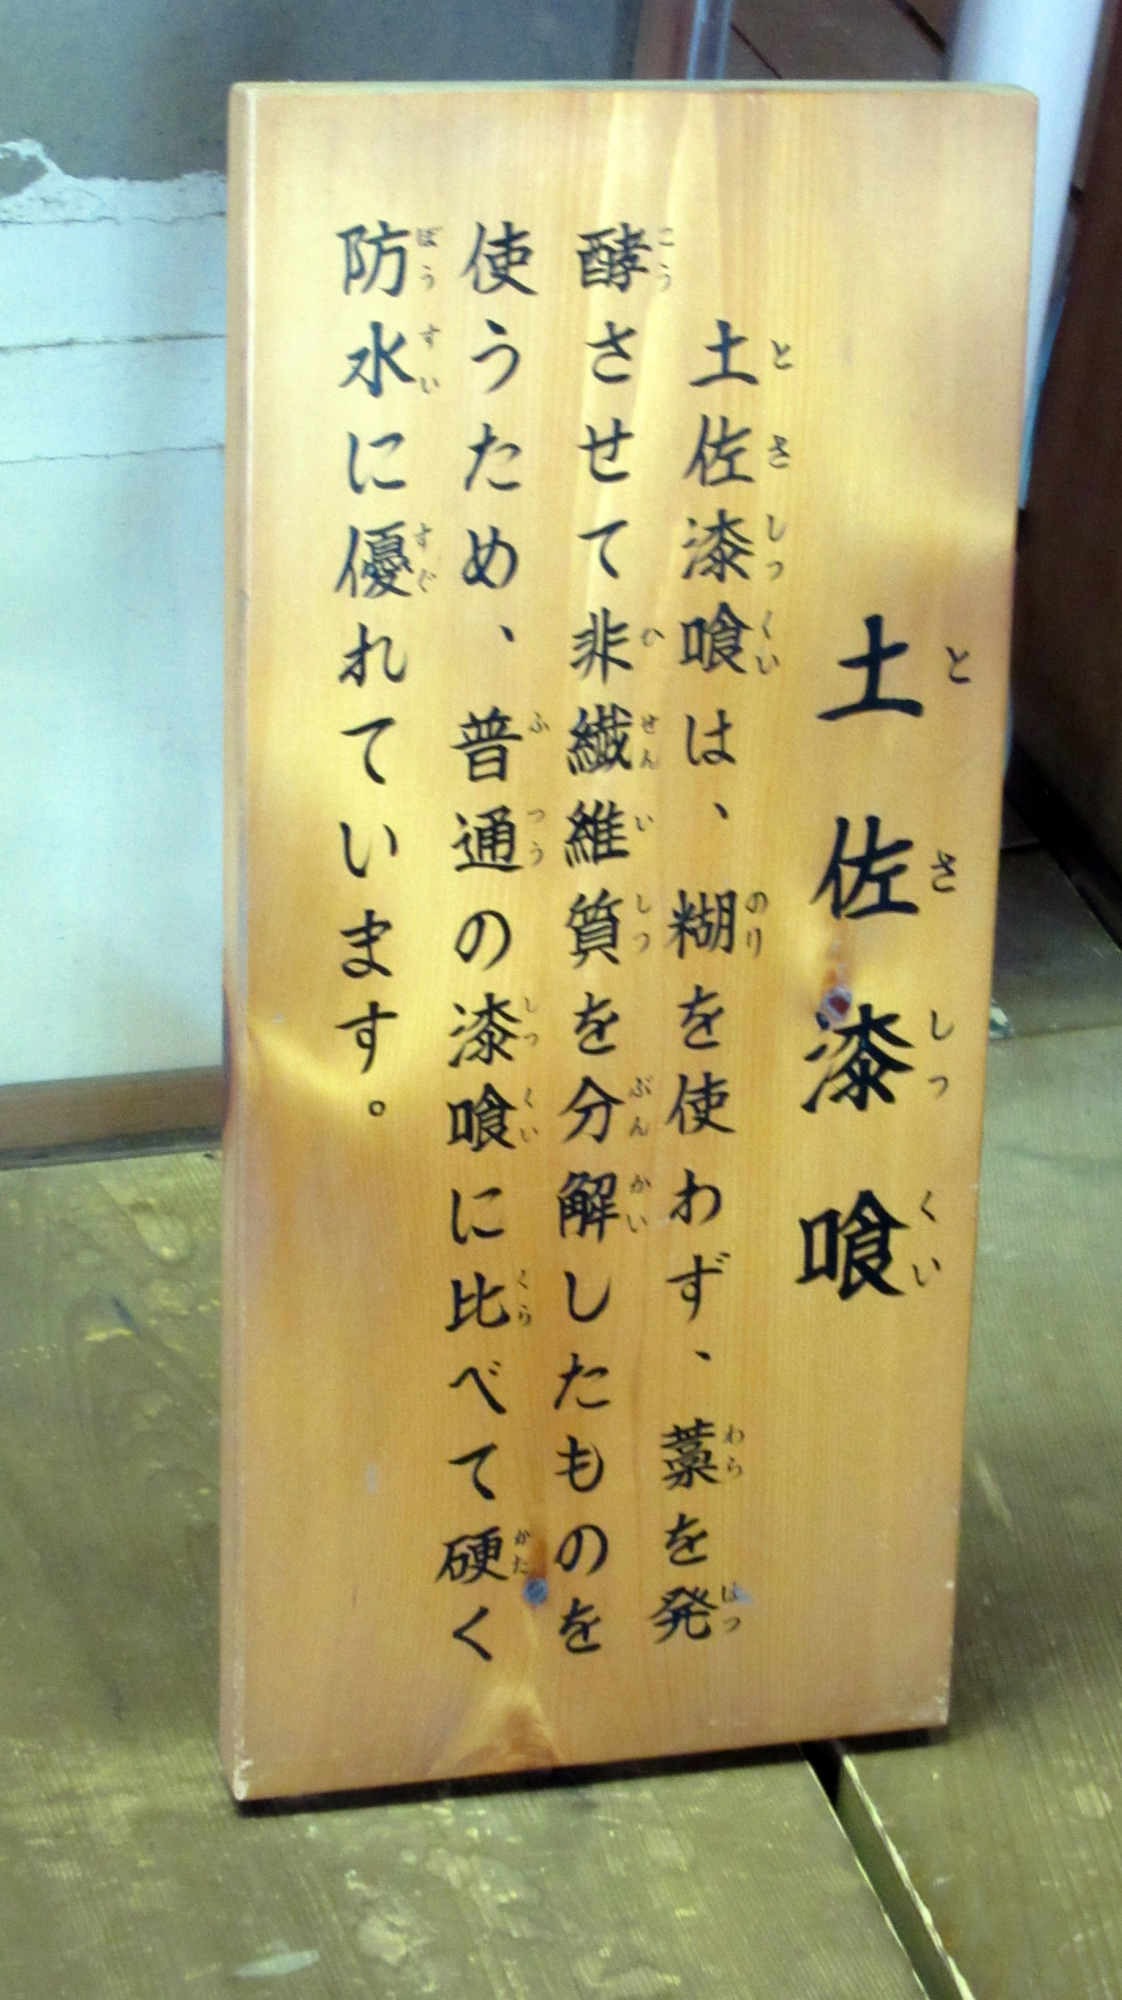 土佐漆喰
土佐漆喰は、糊を使わず、藁を発
酵させて非繊維質を分解したものを
使うため、普通の漆喰に比べて硬く
防水に優れています。